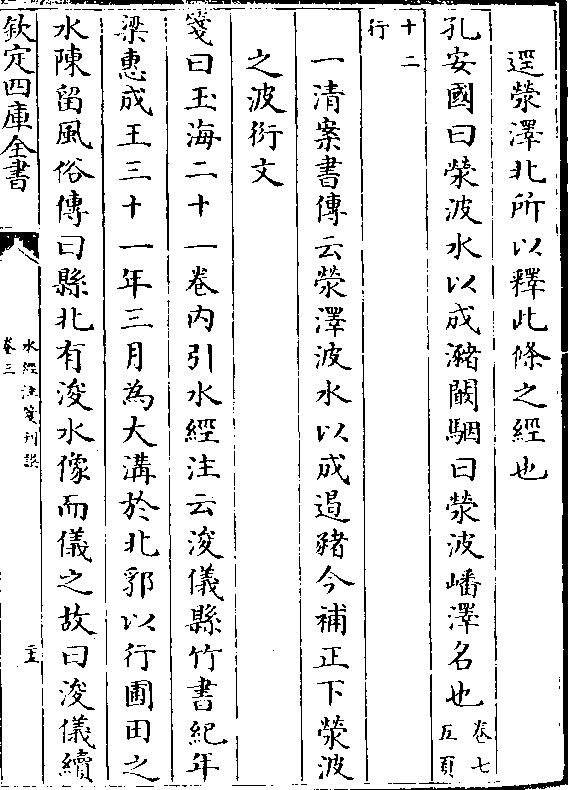 逕滎澤北所以釋此條之經也
孔安國曰滎波水以成瀦闞駰曰滎波嶓澤名也卷七五頁
十二行
一清案書傳云滎澤波水以成遏豬今補正下滎波
之波衍文
箋曰玉海二十一卷内引水經注云浚儀縣竹書紀年
梁惠成王三十一年三月為大溝於北郛以行圃田之
水陳留風俗傳曰縣北有浚水像而儀之故曰浚儀續
欽定四庫全書
水經注箋刊誤
卷三